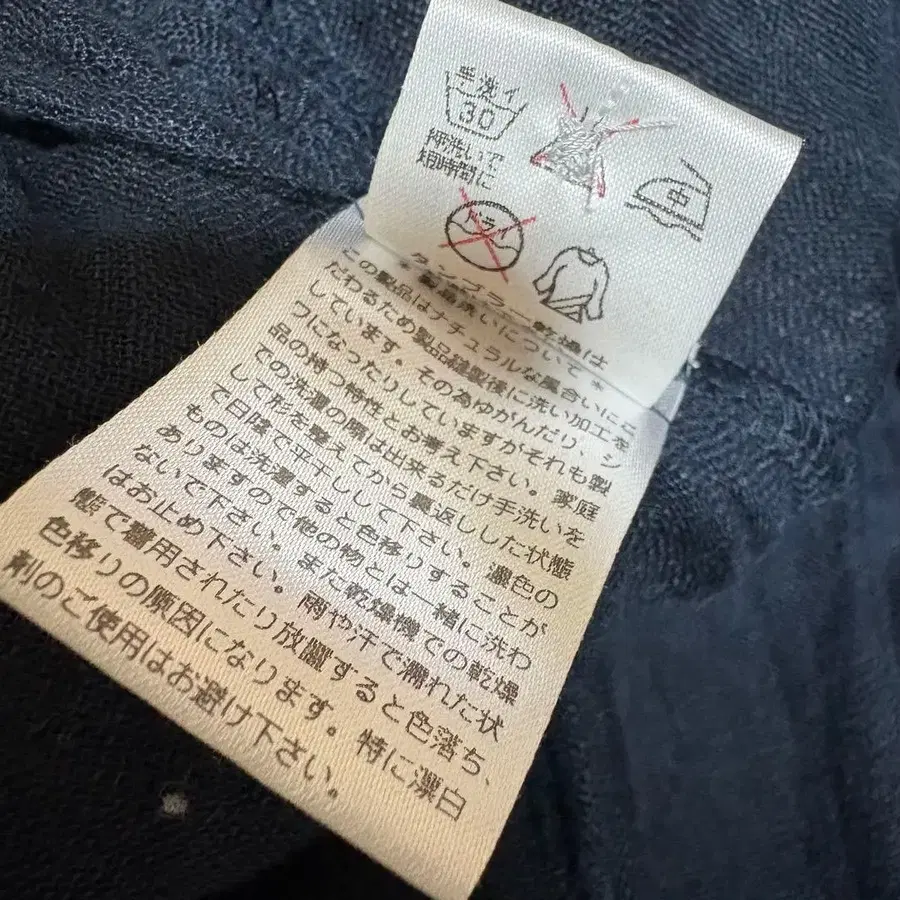 手洗イ
30
押洗いで
短時間に
中
ドライ
タンブラー乾燥は
*製品洗いについて*
この製品はナチュラルな風合いにこ
だわるため製品縫製後に洗い加工を
しています。その為ゆがんだり、シ
ワになったりしていますがそれも製
品の持つ特性とお考え下さい。家庭
での洗濯の際は出来るだけ手洗いを
して形を整えてから裏返しした状態
で日陰で平干しして下さい。濃色の
ものは洗濯すると色移りすることが
ありますので他の物とは一緒に洗わ
ないで下さい。また乾燥機での乾燥
はお止め下さい。雨や汗で濡れた状
態で着用されたり放置すると色落ち、
色移りの原因になります。特に漂白
剤のご使用はお避け下さい。